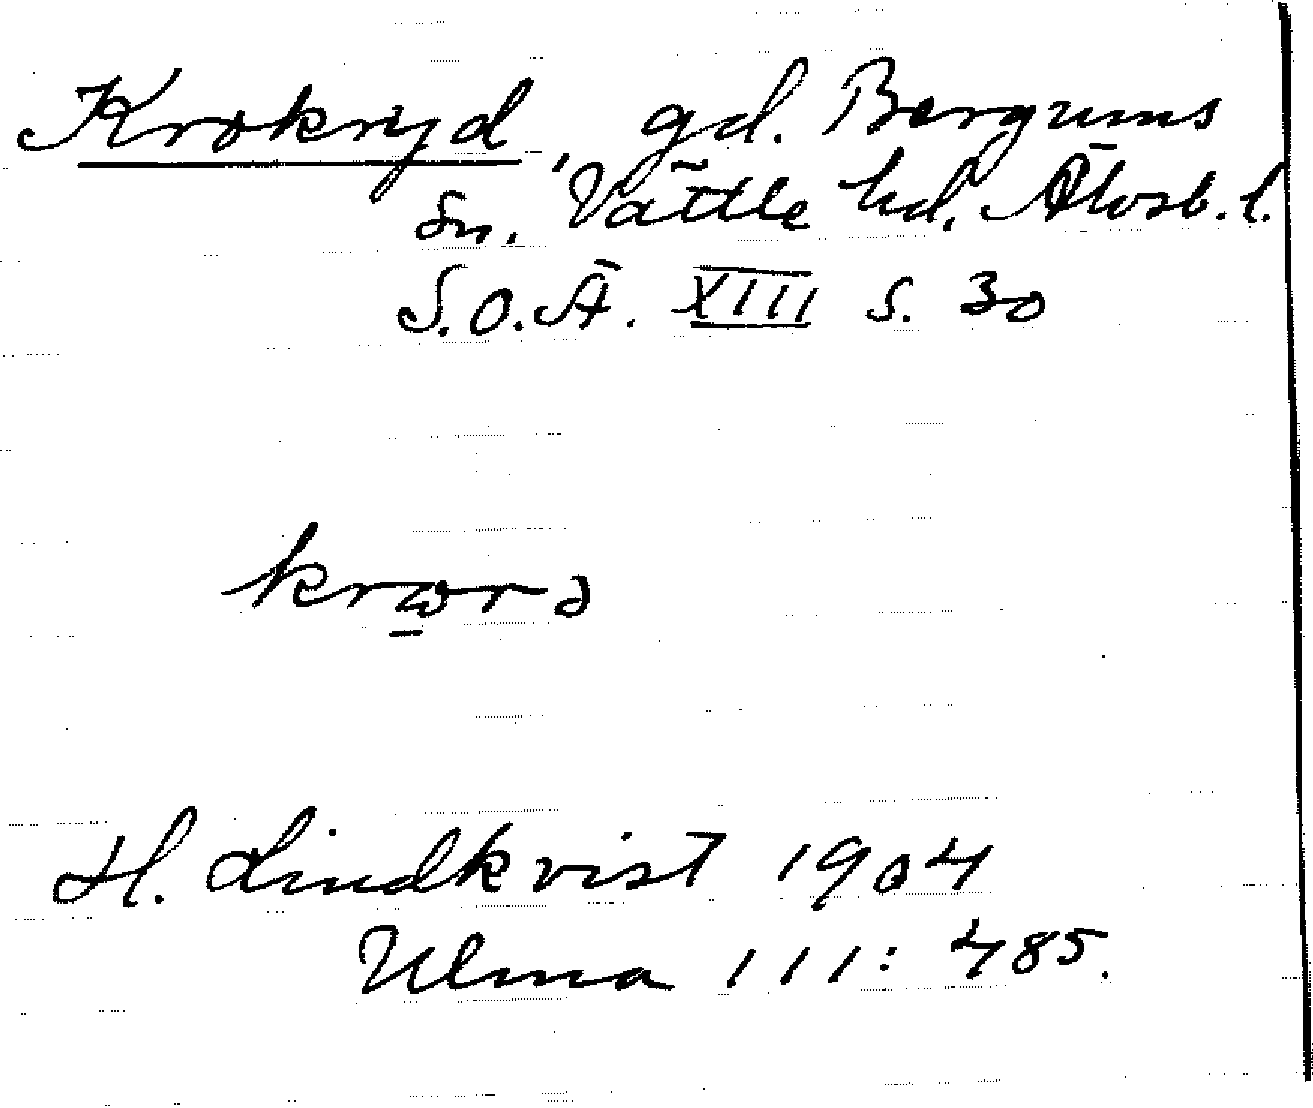 Krokryd, gd. Bergums
sn. Vättle hd. Älvsb. l.
S.O.Ä. XIII s. 30
krωrə
H. Lindkvist 1904
Ulma 111: 485.